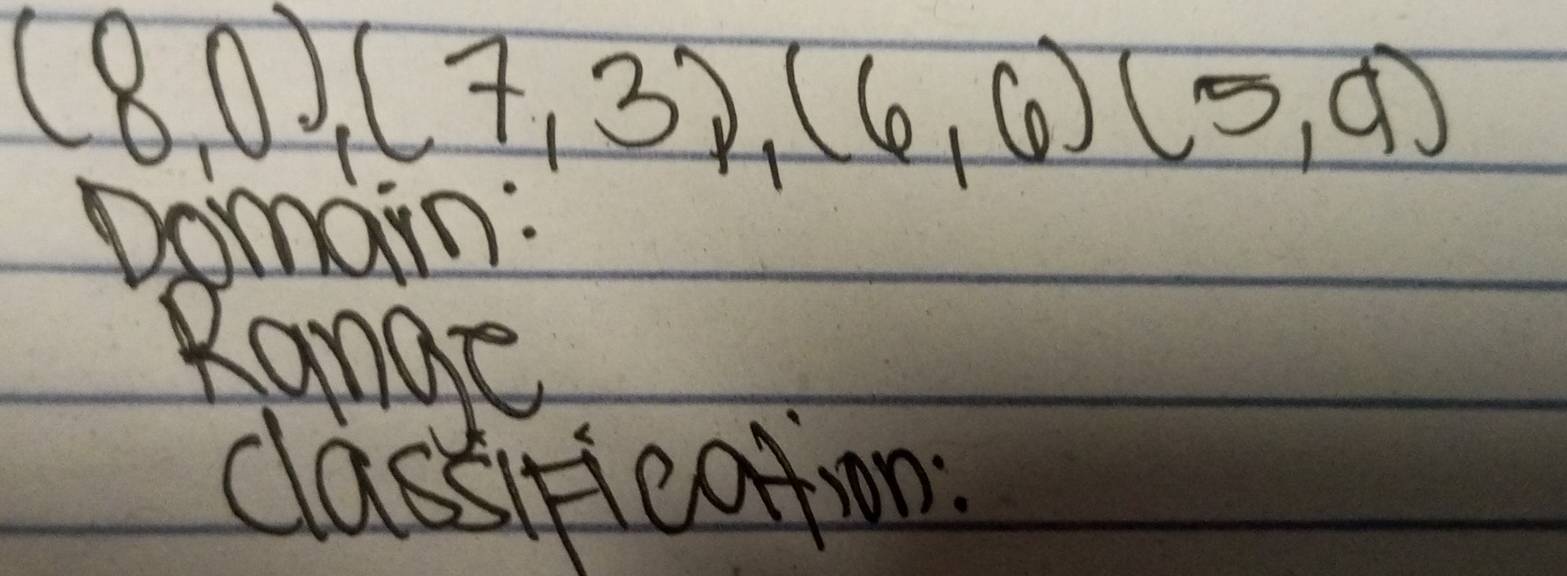 (8,0),(7,3),(6,6)(5,9)
Domain:
Range
classification: